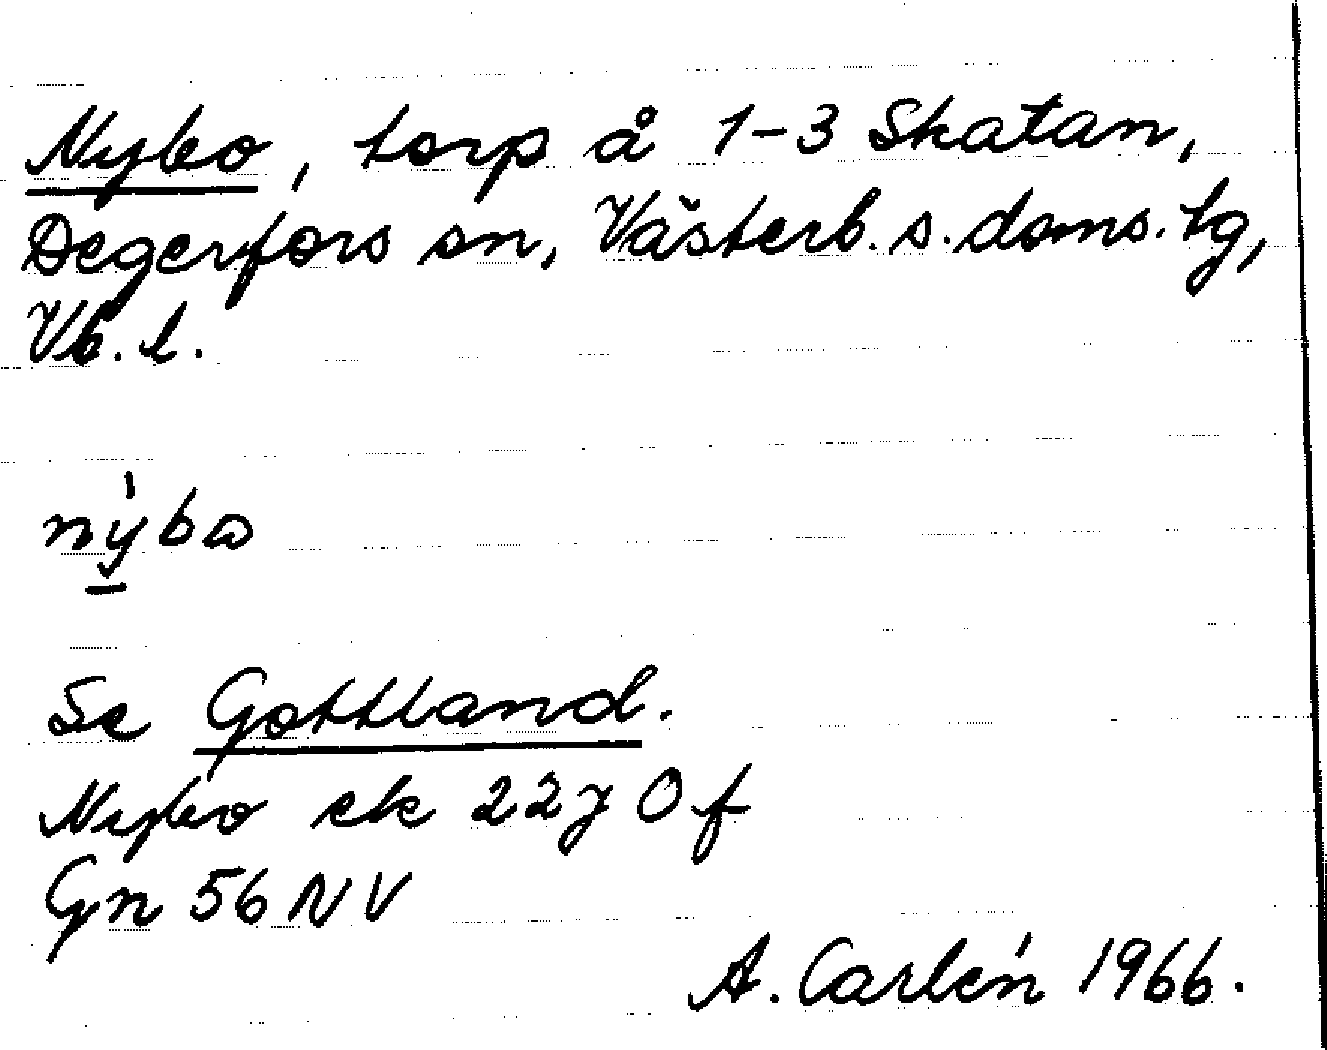 Nybo, torp å 1-3 Skatan,
Degerfors sn, Västerb. s. doms. tg,
Vb. l.
nýbω
Se Gottland.
Nybo ek 22J 0 f
Gn 56 NV
A. Carlén 1966.